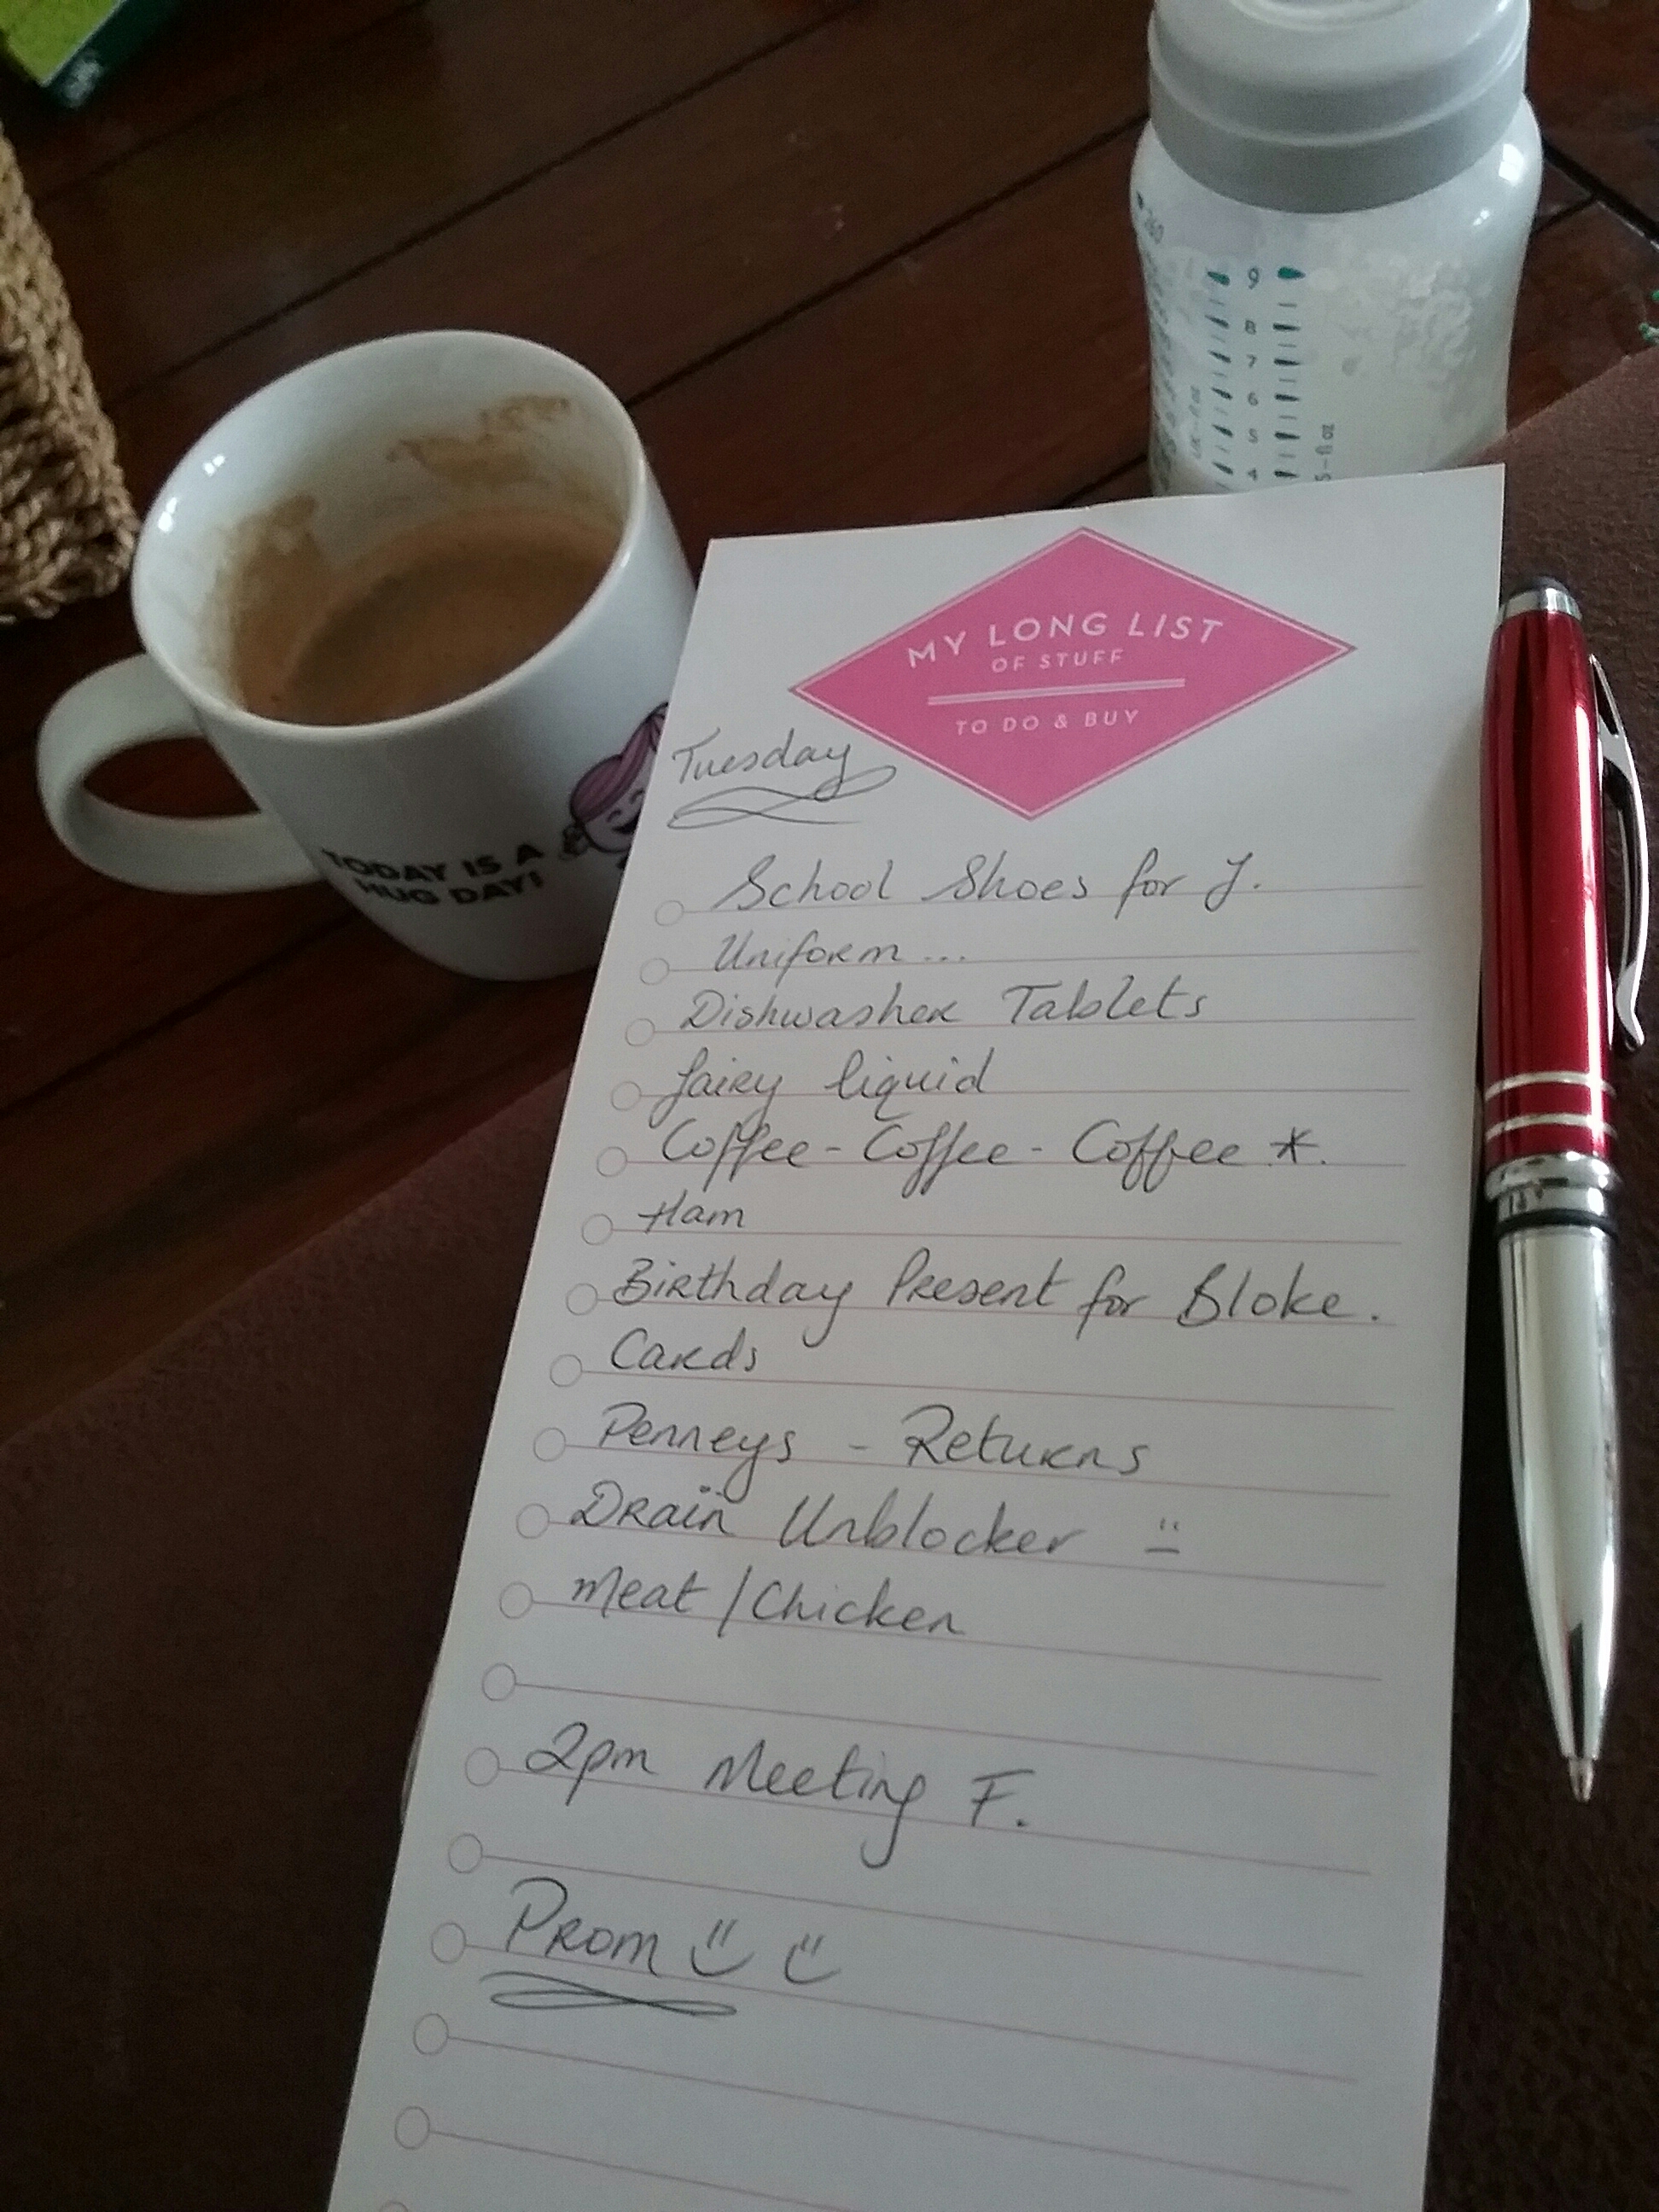 260
9
8
7
6
5
4
MY LONG LIST
OF STUFF
TO DO & BUY
Tuesday
TODAY IS A
HUG DAY!
School Shoes for J.
Uniform...
Dishwasher Tablets
fairy liquid
Coffee - Coffee - Coffee *.
Ham
Birthday Present for Bloke.
Cards
Penneys - Returns
Drain Unblocker
Meat / Chicken
2pm Meeting F.
Prom